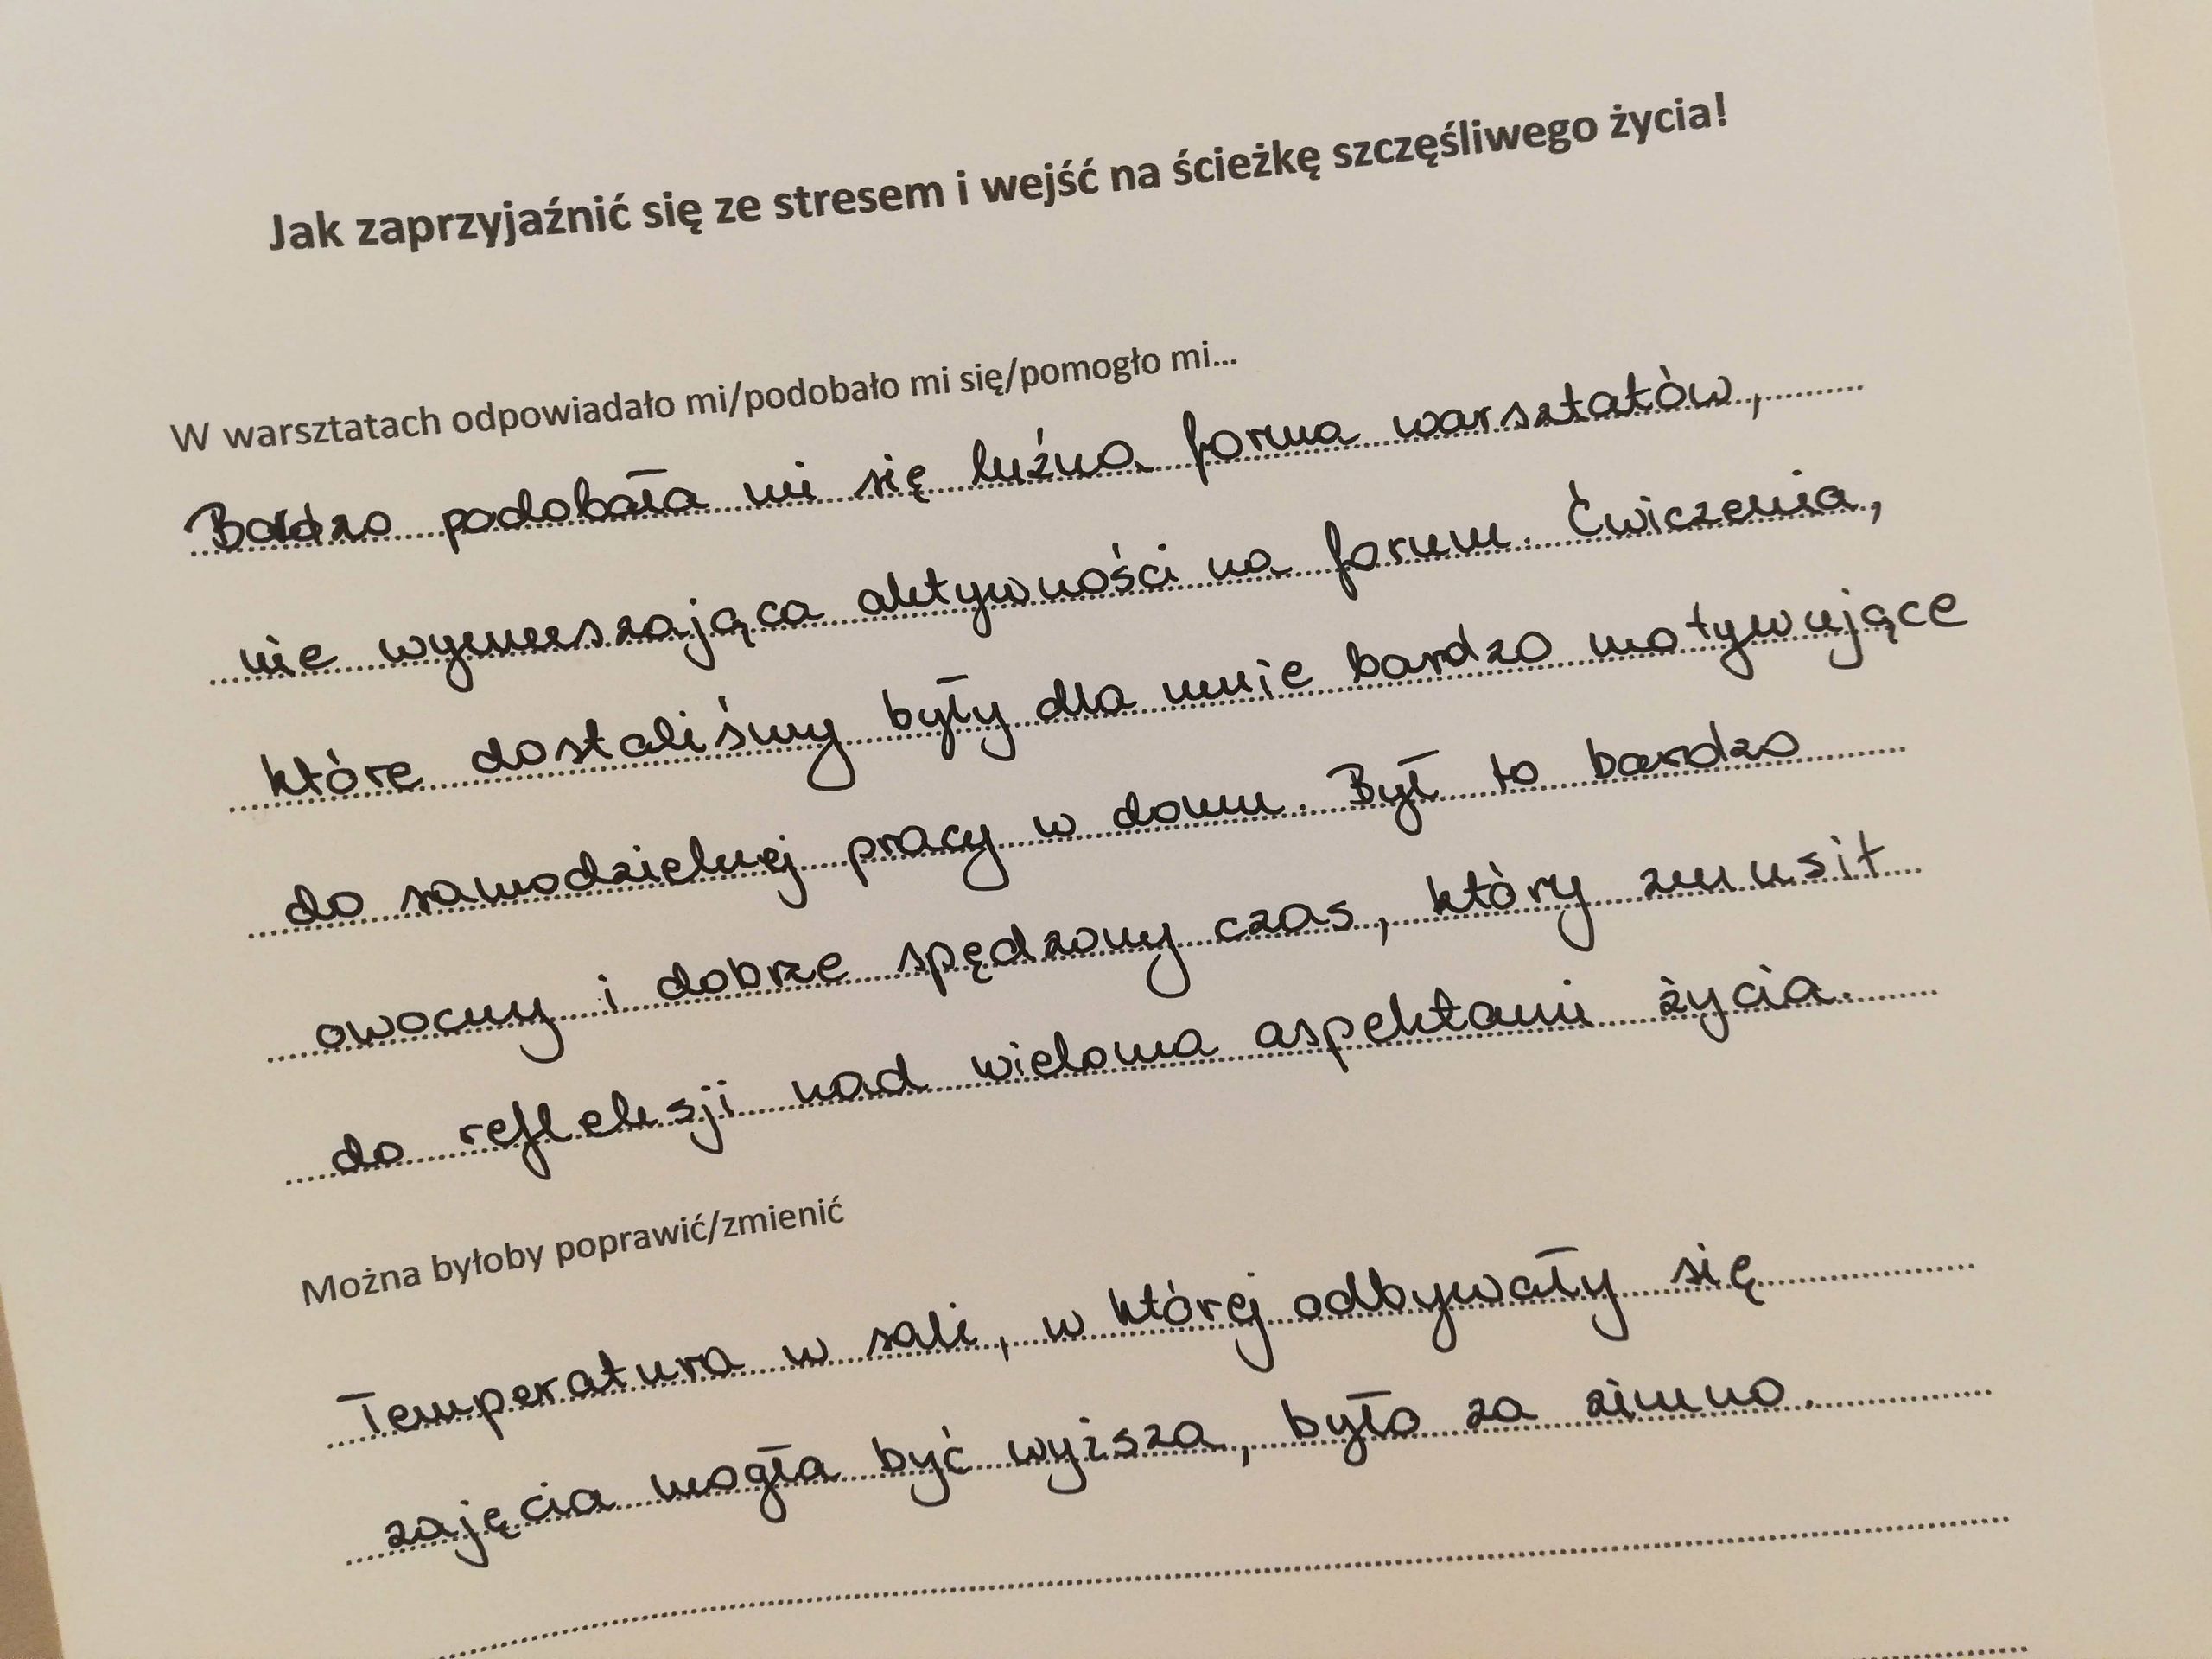 Jak zaprzyjaźnić się ze stresem i wejść na ścieżkę szczęśliwego życia!
W warsztatach odpowiadało mi/podobało mi się/pomogło mi...
Bardzo podobała mi się luźna forma warsztatów,
nie wymuszająca aktywności na forum. Ćwiczenia,
które dostaliśmy były dla mnie bardzo motywujące
do samodzielnej pracy w domu. Był to bardzo
owocny i dobrze spędzony czas, który zmusił
do refleksji nad wieloma aspektami życia.
Można byłoby poprawić/zmienić
Temperatura w sali, w której odbywały się
zajęcia mogła być wyższa, było za zimno.